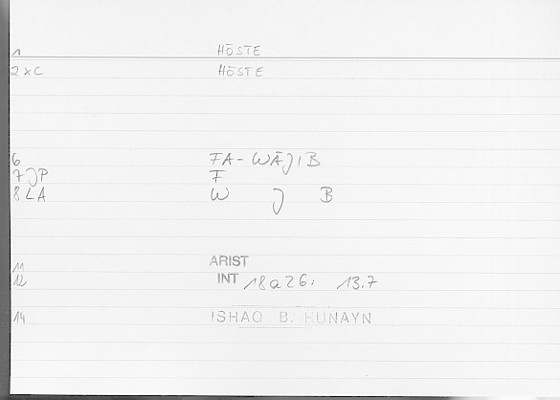 1 HŌSTE
2 XC HŌSTE
6 FA-WĀJIB
7 JP F
8 LA W J B
11 ARIST
12 INT 18a26. 13.7
14 ISHAQ B. HUNAYN